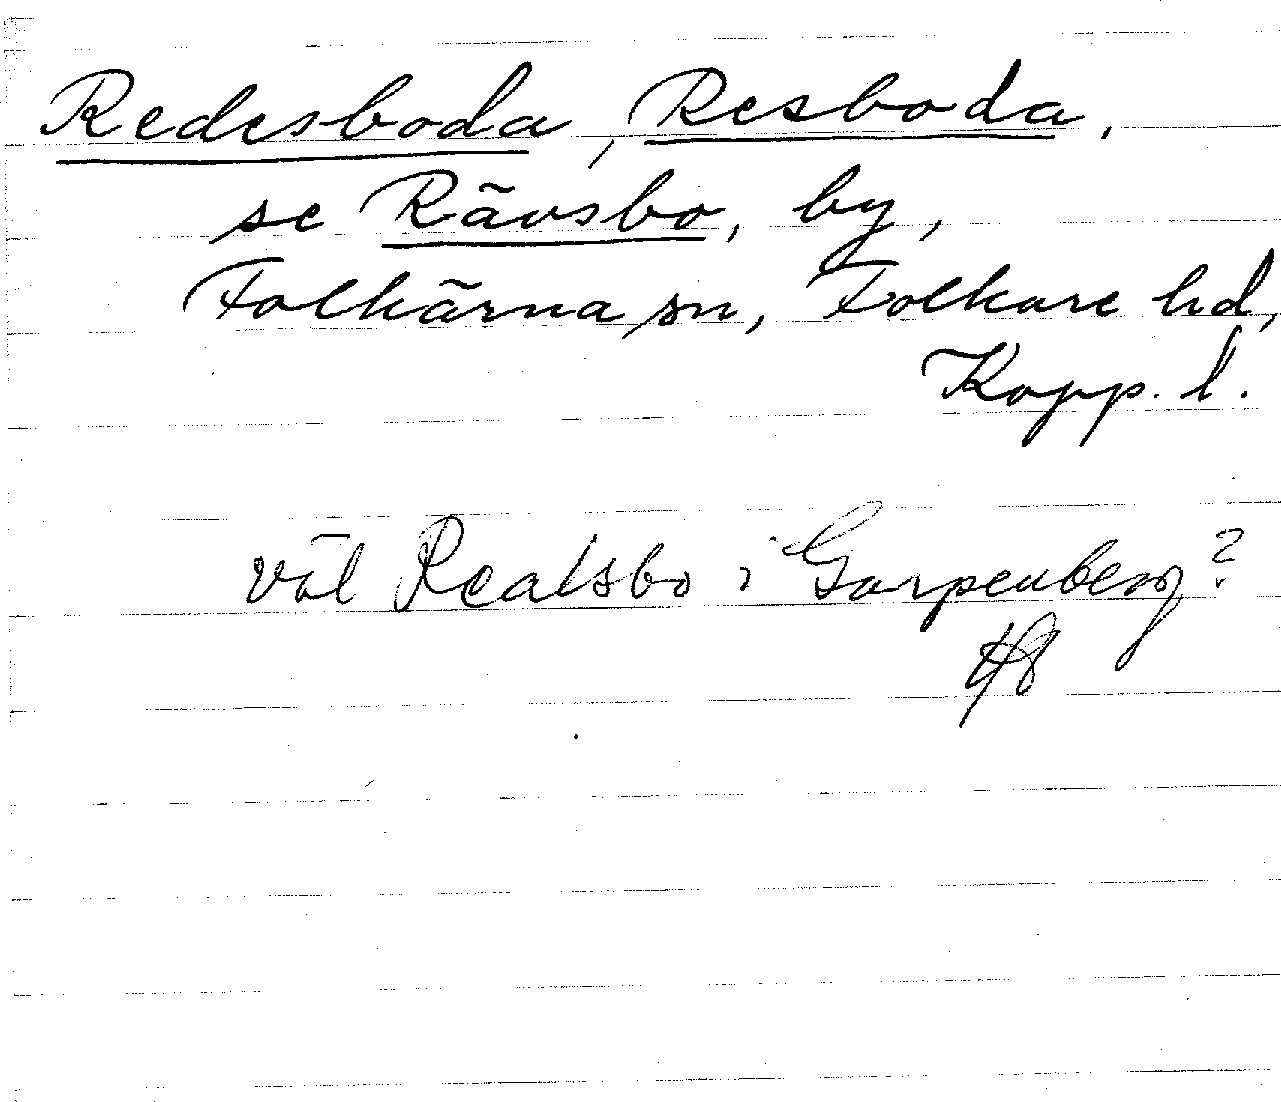 Redesboda, Resboda,
se Rävsbo, by,
Folkärna sn, Folkare hd,
Kopp. l.
väl Realsbo i Garpenberg?